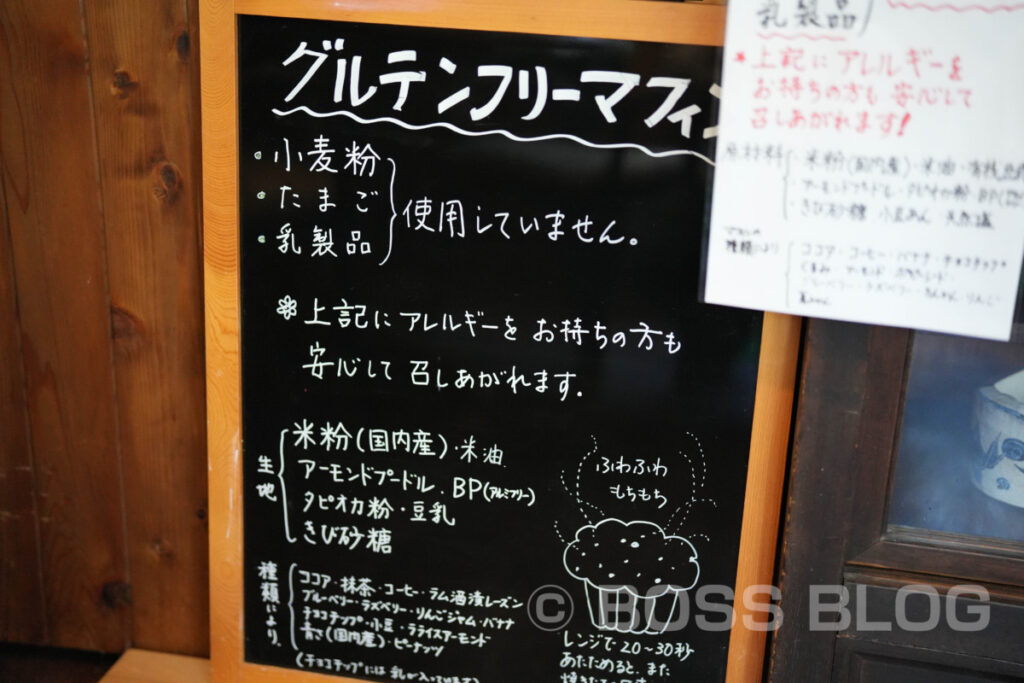 グルテンフリーマフィン
・小麦粉
・たまご
・乳製品
使用していません。
❀上記にアレルギーをお持ちの方も
安心して召しあがれます.
生地
米粉(国内産)・米油
アーモンドプードル.BP(アルミフリー)
タピオカ粉・豆乳
きび砂糖
種類により,
ココア・抹茶・コーヒー・ラム酒漬レーズン
ブルーベリー・ラズベリー・りんごジャム・バナナ
チョコチップ・小豆・スライスアーモンド
青さ(国内産)・ピーナッツ
(チョコチップには乳が入っています)
ふわふわ
もちもち
レンジで20~30秒
あたためると、また
乳製品)
*上記にアレルギーを
お持ちの方も安心して
召しあがれます!
原材料
米粉(国内産)・米油・
きび砂糖 小豆あん 天然塩
種類により
ココア・コーヒー・バナナ・チョコチップ・
くるみ・アーモンド
ブルーベリー・ラズベリー・
りんご
© BOSS BLOG